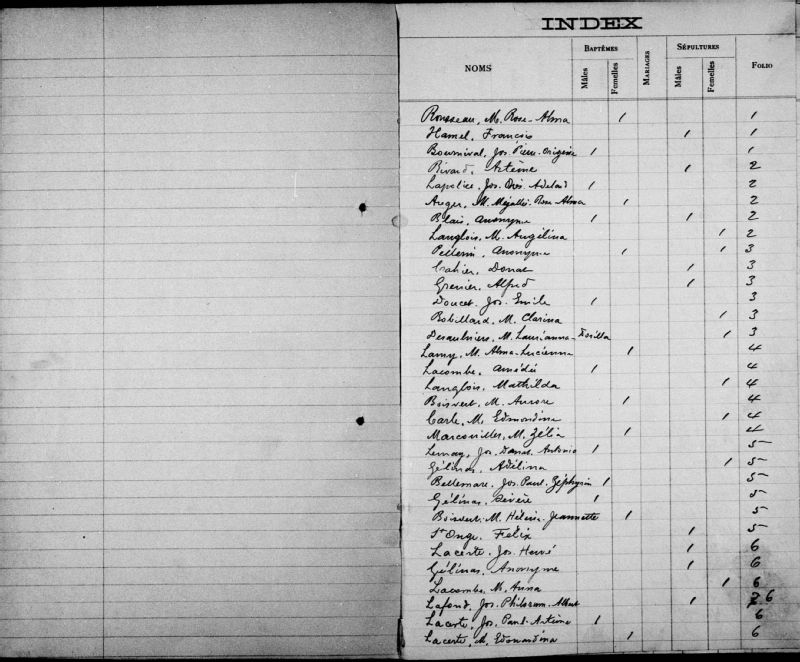 INDEX
NOMS BAPTÊMES Mâles Femelles MARIAGES SÉPULTURES Mâles Femelles FOLIO
Rousseau, M. Rose-Alma 1 1
Hamel, François 1 1
Bournival, Jos. Pierre-Origène 1 1
Rivard, Artème 1 2
Lapolice, Jos. Adelard 1 2
Auger, M. Rose Alma 1 2
Blais, Anonyme 1 1 2
Langlois, M. Angélina 1 2
Pellerin, Anonyme 1 1 3
Donat 1 3
Grenier, Alfred 1 3
Doucet, Jos. Emile 1 3
Robillard, M. Clarina 1 3
Desaulniers, M. Laurianna- 1 3
Lamy, M. Alma-Lucienna 1 4
Lacombe, Amédée 1 4
Langlois, Mathilda 1 4
Boisvert, M. Aurore 1 4
Carle, M. Edmondina 1 4
Marcouiller, M. Zélia 1 4
Lemay, Jos. Donat. Antonio 1 5
Gélinas, Adélina 1 5
Bellemare, Jos. Paul-Zéphyrin 1 5
Gélinas, Sévère 1 5
Boisvert, M. Hélène-Jeannette 1 5
St Onge, Félix 1 5
Lacerte, Jos. Hervé 1 6
Gélinas, Anonyme 1 6
Lacombe, M. Anna 1 6
Lafond, Jos. Philoram-Albert 1 6
Lacerte, Jos. Paul-Artème 1 6
Lacerte, M. Edouardina 1 6